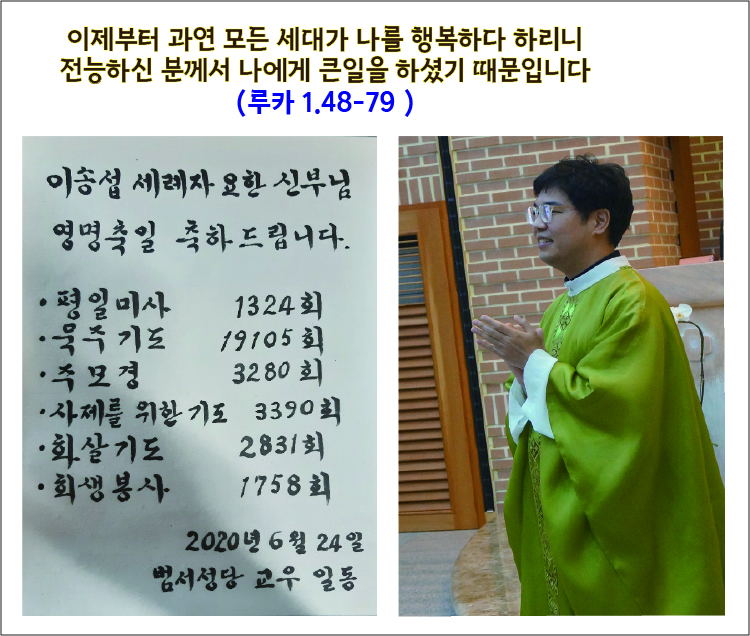 이제부터 과연 모든 세대가 나를 행복하다 하리니
전능하신 분께서 나에게 큰일을 하셨기 때문입니다
(루카 1.48-79 )
이송섭 세례자 요한 신부님
영명축일 축하드립니다.
· 평일미사 1324회
· 묵주기도 19105회
· 주모경 3280회
· 사제를 위한 기도 3390회
· 화살기도 2831회
· 희생봉사 1758회
2020년 6월 24일
범서성당 교우 일동